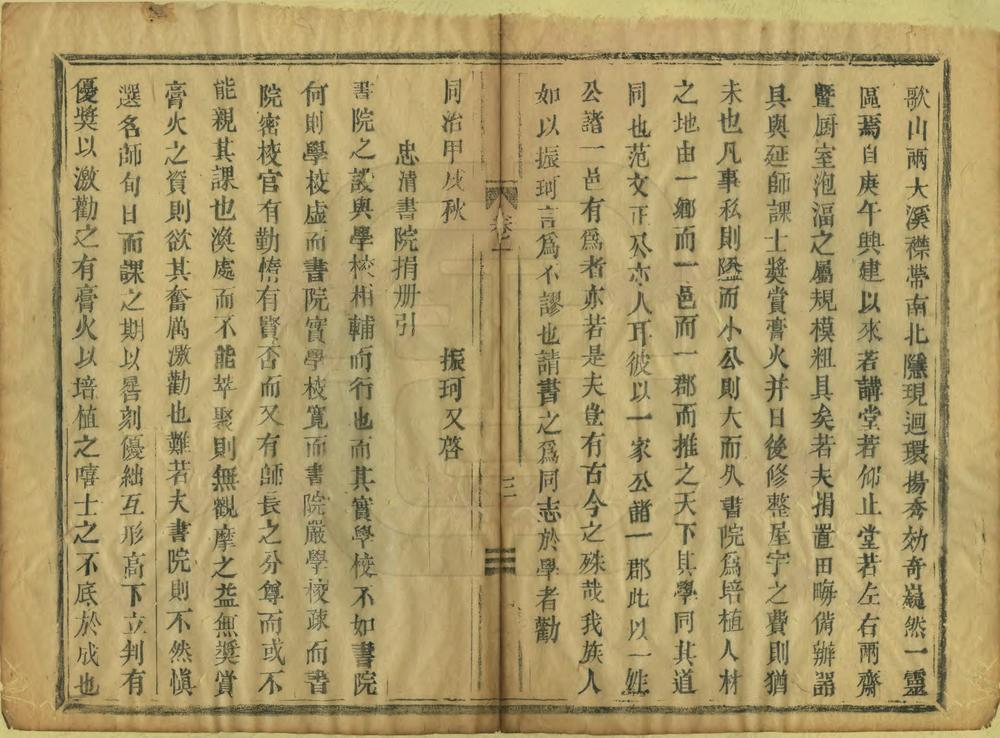 歌山兩大溪襟帶南北隱現迴環揚秀効奇巍然一靈
區焉自庚午興建以來若講堂若仰止堂若左右兩齋
曁厨室泡湢之屬規模粗具矣若夫捐置田畮備辦器
具與延師課士奬賞膏火并日後修整屋宇之費則猶
未也凡事私則隘而小公則大而久書院爲培植人材
之地由一鄉而一邑而一郡而推之天下其學同其道
同也范文正公亦人耳彼以一家公諸一郡此以一姓
公諸一邑有爲者亦若是夫豈有古今之殊哉我族人
如以振珂言爲不謬也請書之爲同志於學者勸
卷上
三
同治甲戌秋 振珂又啓
忠清書院捐册引
書院之設與學校相輔而行也而其實學校不如書院
何則學校虛而書院實學校寬而書院嚴學校疎而書
院密校官有勤惰有賢否而又有師長之分尊而或不
能親其課也渙處而不能萃聚則無觀摩之益無奬賞
膏火之資則欲其奮厲激勸也難若夫書院則不然慎
選名師旬日而課之期以晷刻優絀互形高下立判有
優奬以激勸之有膏火以培植之嘻士之不底於成也